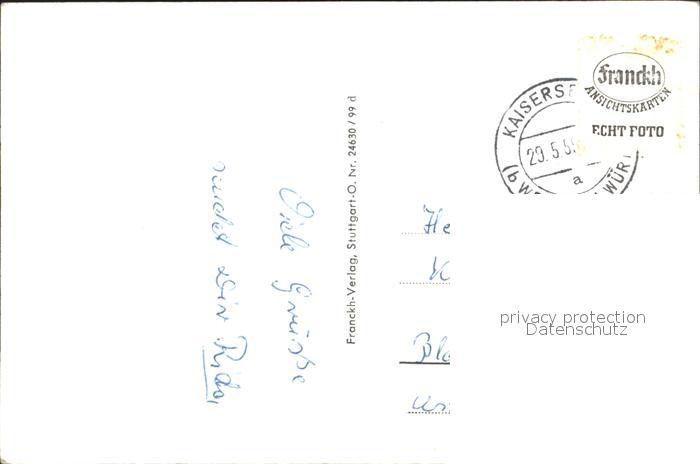 Franckh
ANSICHTSKARTEN
ECHT FOTO
KAISERSB
29.5.5
a
(b WÜR
Franckh-Verlag, Stuttgart-O. Nr. 24630 / 99 d
Viele Grüße
sendet Dir
He
K
Bla
privacy protection
Datenschutz